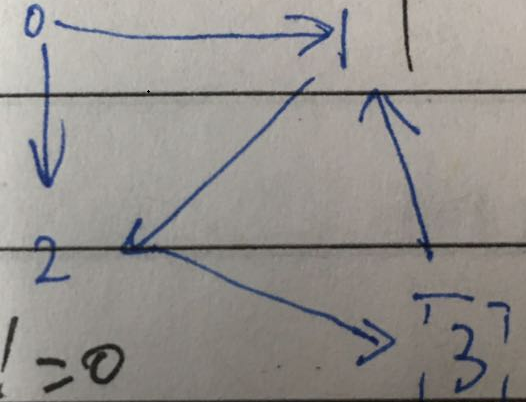 0 1
2
3
!=0